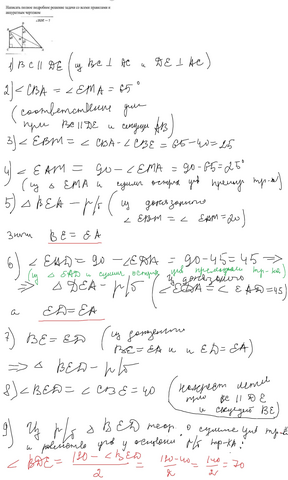 Написать полное подробное решение задачи со всеми правилами и аккуратным чертежом
1) BC ∥ DE (из BC ⊥ AC и DE ⊥ AC)
2) ∠CBA = ∠EMA = 65°
(соответственные для
при BC ∥ DE и секущей AB)
3) ∠EBM = ∠CBA - ∠CBE = 65-40=25
4) ∠EAM = 90 - ∠EMA = 90-65=25°
(из △ EMA и сумм острых угв прямоуг тр-ка)
5) △ BEA - р/б (из доказанного
∠EBM = ∠EAM = 20)
Значит BE = EA
6) ∠EAD = 90 - ∠EDA = 90-45=45 ⟹
(из △ EAD и сумм острых угв прямоугольн тр-ка)
⟹ △ DEA - р/б (из доказанного
∠EDA = ∠EAD = 45)
а ED = EA
7) BE = ED (из доказанного
BE = EA и и ED = EA)
⟹ △ BED - р/б
8) ∠BED = ∠CBE = 40 (накрест лежащ
при BC ∥ DE
и секущей BE)
9) Из р/б △ BED теор. о сумме угв тр-ка
и равенство угв у основания р/б тр-ка:
∠BDE = 180-∠BED / 2 = 180-40 / 2 = 140 / 2 = 70